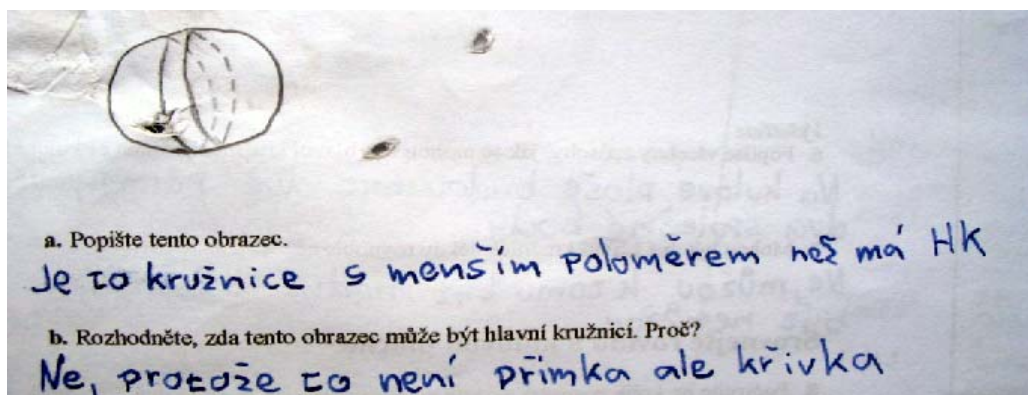 a. Popište tento obrazec.
Je to kružnice s menším poloměrem než má HK
b. Rozhodněte, zda tento obrazec může být hlavní kružnicí. Proč?
Ne, protože to není přímka ale křivka